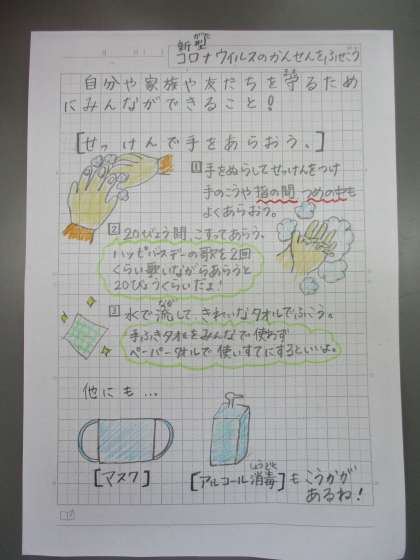 新型コロナウイルスのかんせんをふせごう
自分や家族や友だちを守るため
にみんなができること!
[せっけんで手をあらおう。]
1 手をぬらしてせっけんをつけ
手のこうや指の間つめの中も
よくあらおう。
2 20びょう間、こすってあらう。
ハッピバースデーの歌を2回
くらい歌いながらあらうと
20びょうくらいだよ!
3 水で流して、きれいなタオルでふこう。
手ふきタオルをみんなで使わず
ペーパータオルで使いすてにするといいよ。
他にも…
[マスク]
[アルコール消毒]もこうかが
あるね!